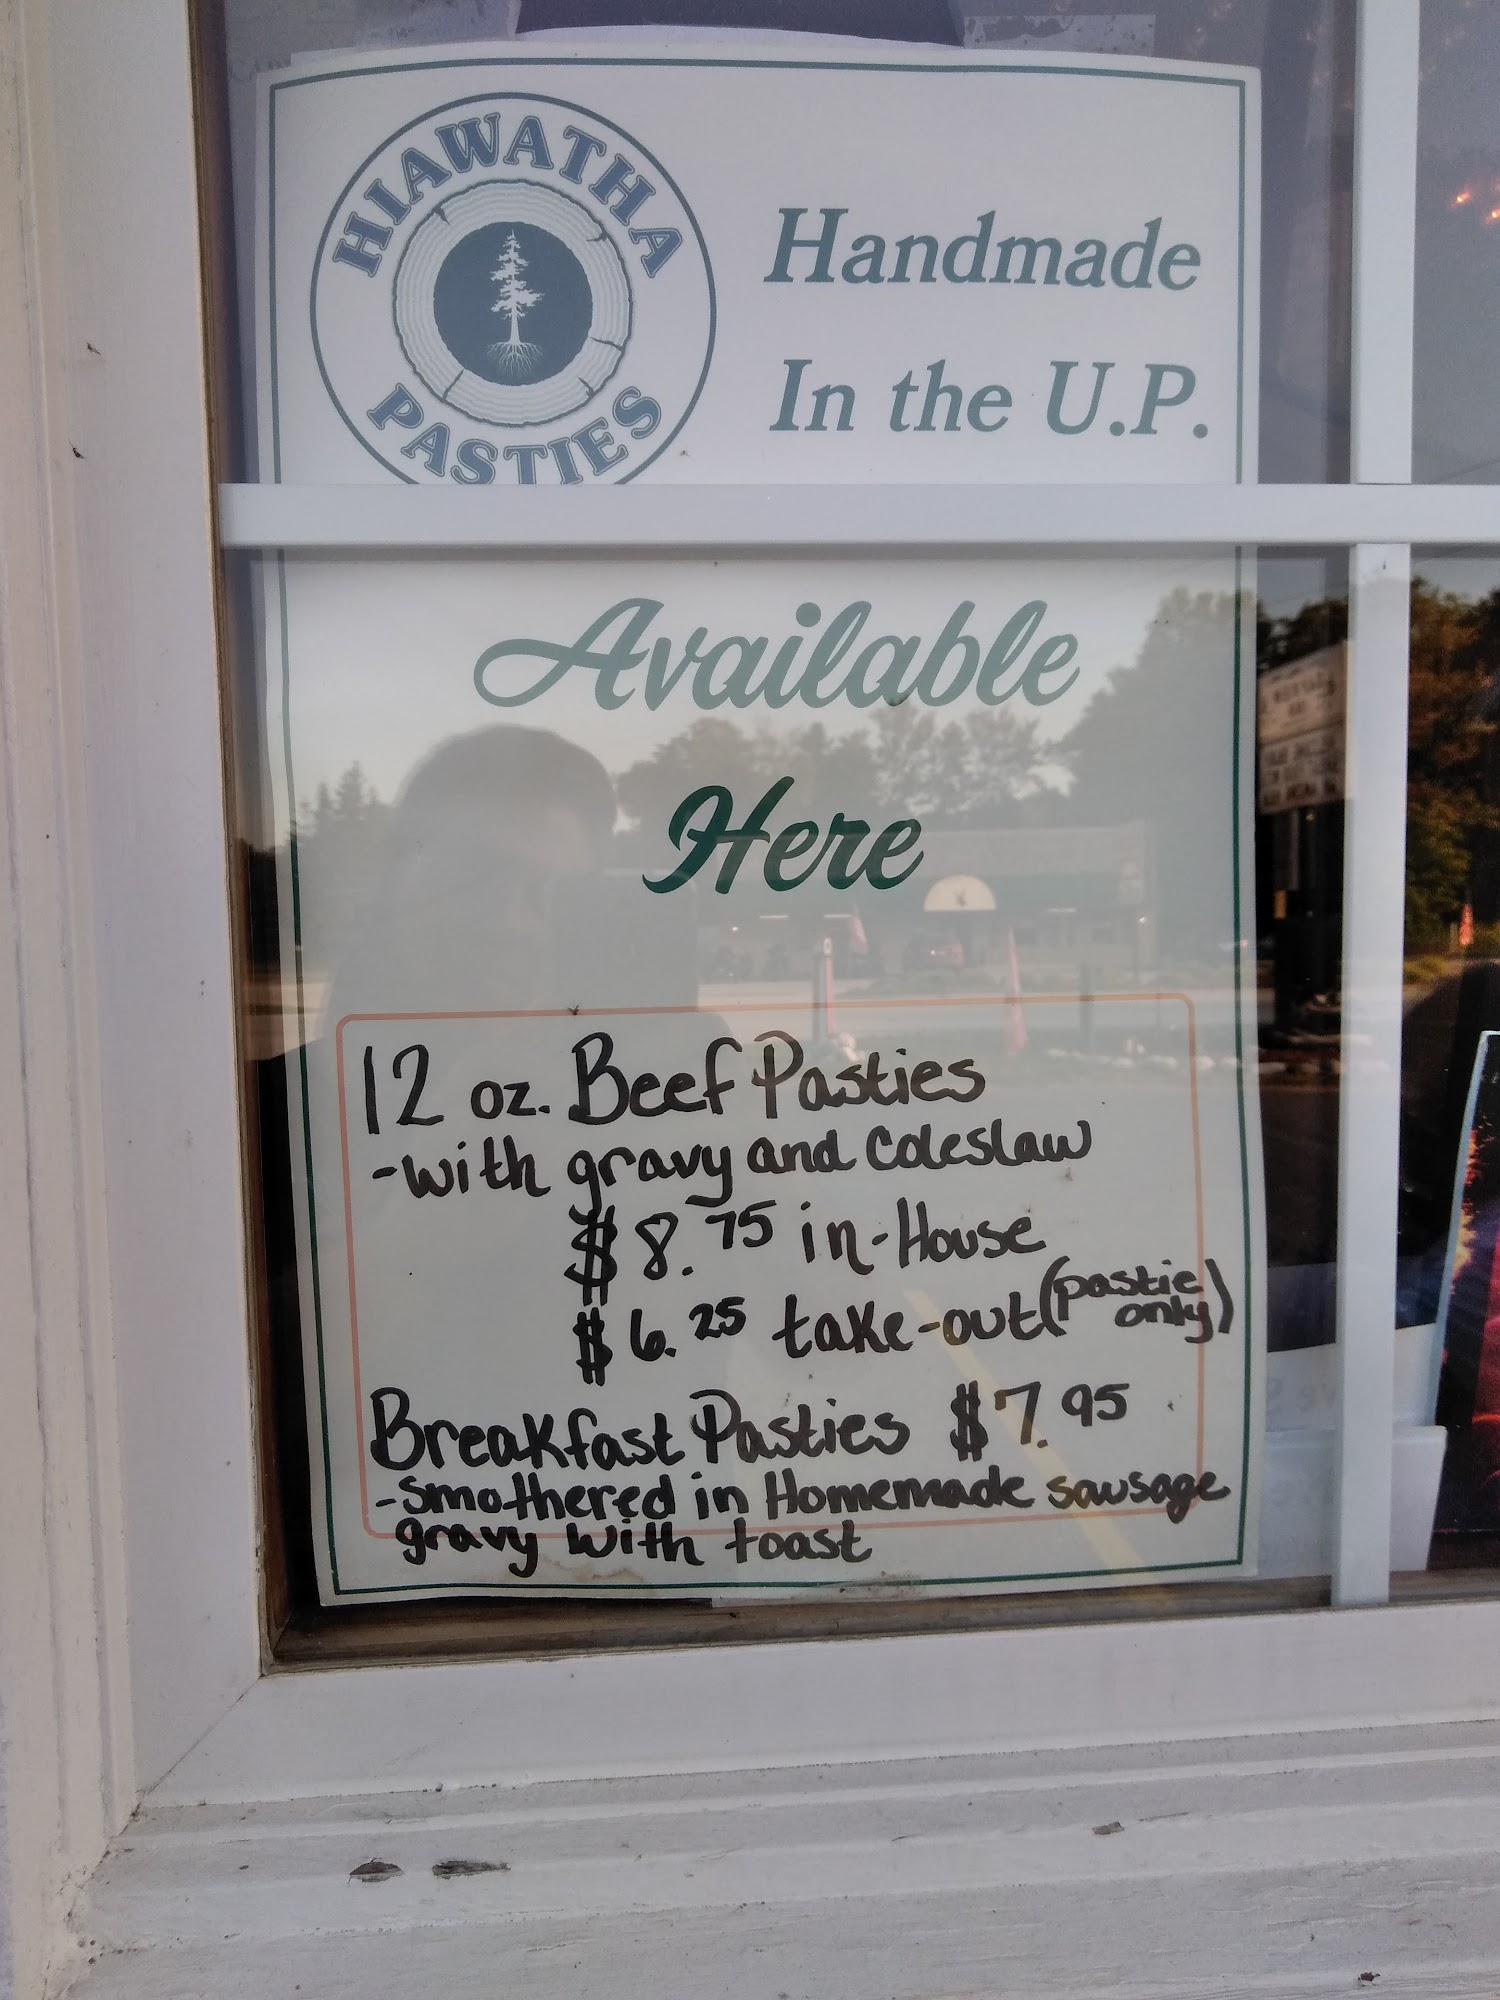 HIAWATHA
PASTIES
Handmade
In the U.P.
Available
Here
12 oz. Beef Pasties
-with gravy and coleslaw
$8.75 in-House
$6.25 take-out (pastie only)
Breakfast Pasties $7.95
-smothered in Homemade sausage
gravy with toast